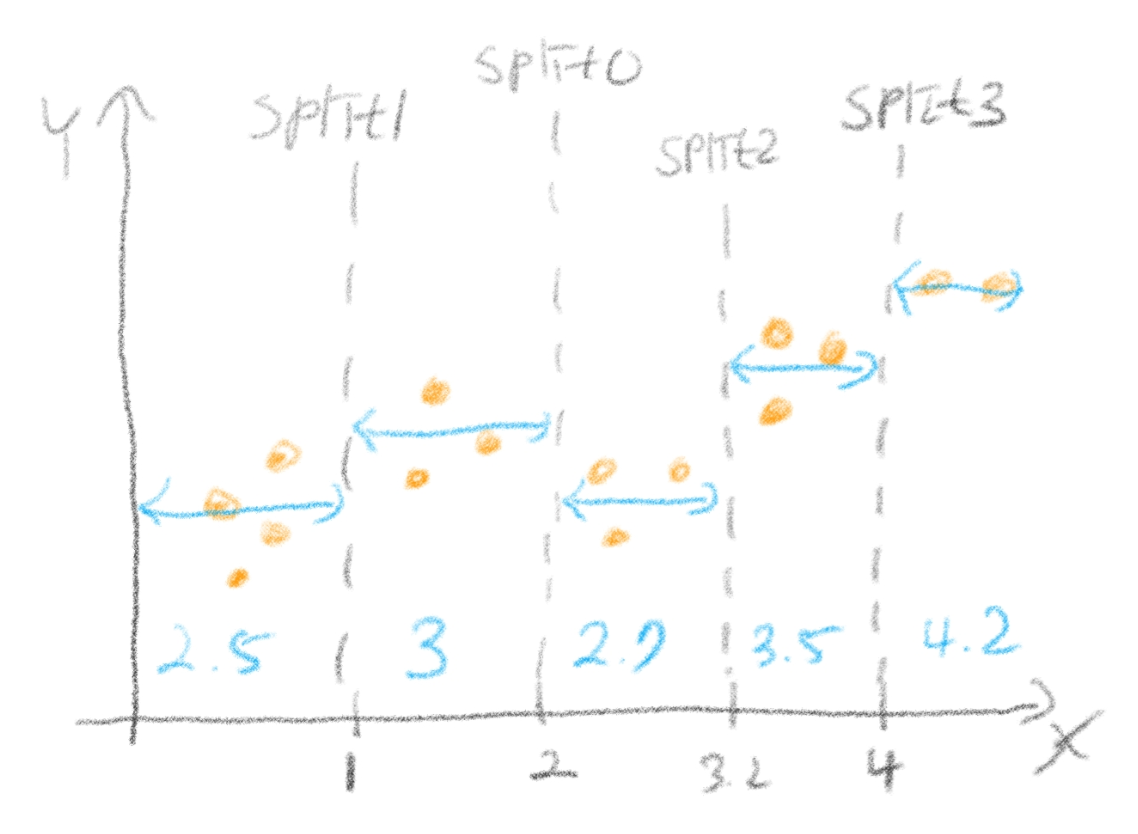 split0
split1
split3
split2
Y
2.5
3
2.9
3.5
4.2
1
2
3.2
4
X